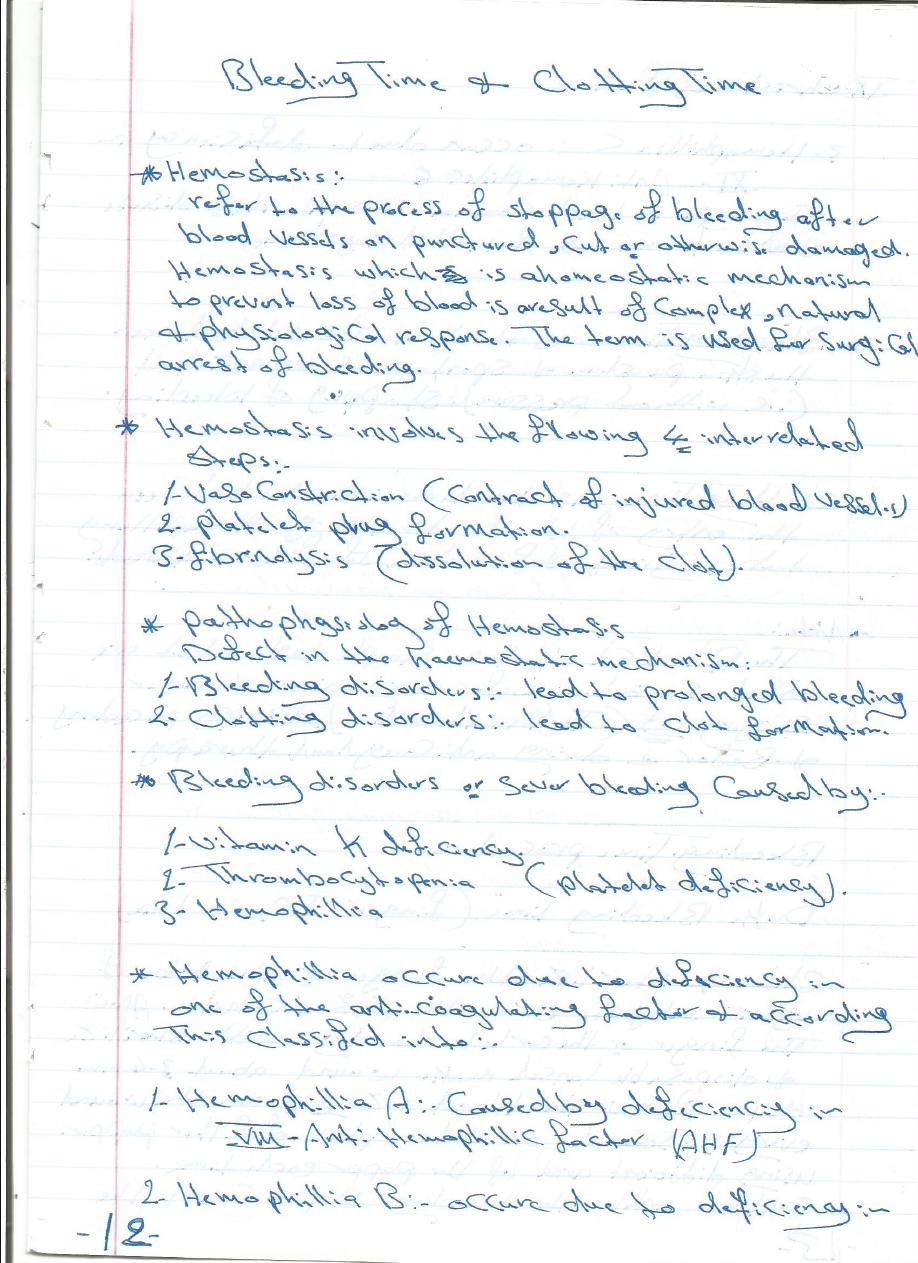 Bleeding Time & Clotting Time
* Hemostasis:-
refer to the process of stoppage of bleeding after
blood vessels on punctured, cut or otherwise damaged.
Hemostasis which is ahomeostatic mechanism
to prevent loss of blood is aresult of Complex, natural
& physiological response. The term is used for Surgical
arrest of bleeding.
* Hemostasis involves the flowing 4 interrelated
Steps:-
1- VasoConstriction (Contract of injured blood vessels)
2- platelet plug formation.
3- fibrnolysis (dissolution of the clot).
* pathophysiolog of Hemostasis
Defect in the haemostatic mechanism:
1- Bleeding disorders:- lead to prolonged bleeding
2- Clotting disorders:- lead to Clot formation.
* Bleeding disorders or Sever bleeding Caused by:-
1- vitamin K deficiency.
2- Thrombocytopenia (platelet deficiency).
3- Hemophillia
* Hemophillia occure due to deficiency in
one of the anti-coagulating factor & according
This Classified into:-
1- Hemophillia A:- Caused by deficiency in
VIII - Anti Hemophillic factor (AHF)
2- Hemophillia B:- occure due to deficiency in
-12-